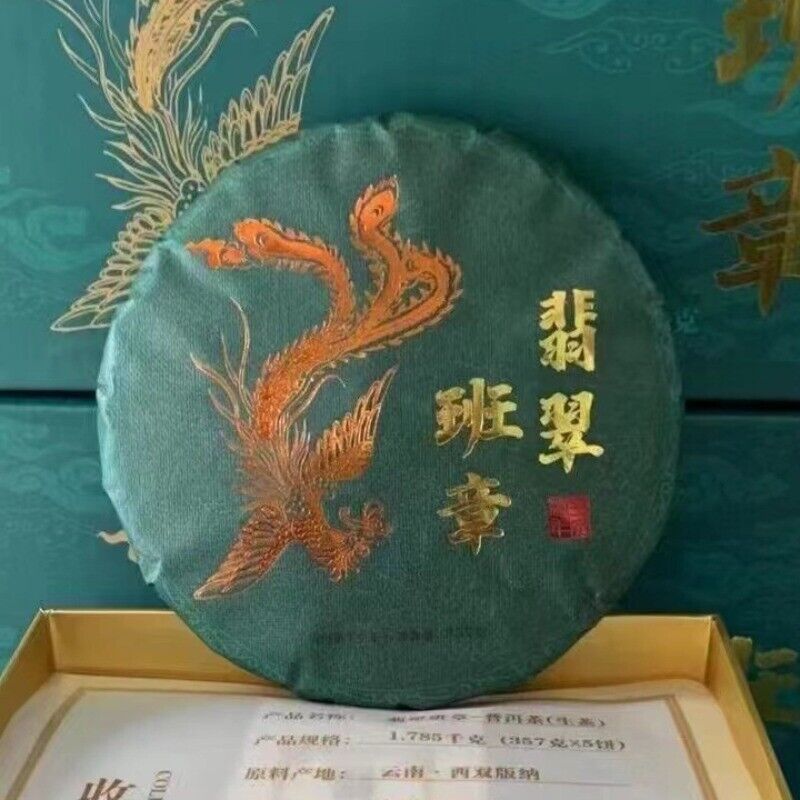 班
章
克
翡翠
班章
产品名称： 翡翠班章-普洱茶(生茶)
产品规格： 1.785千克 (357克×5饼)
原料产地： 云南·西双版纳
收
COL